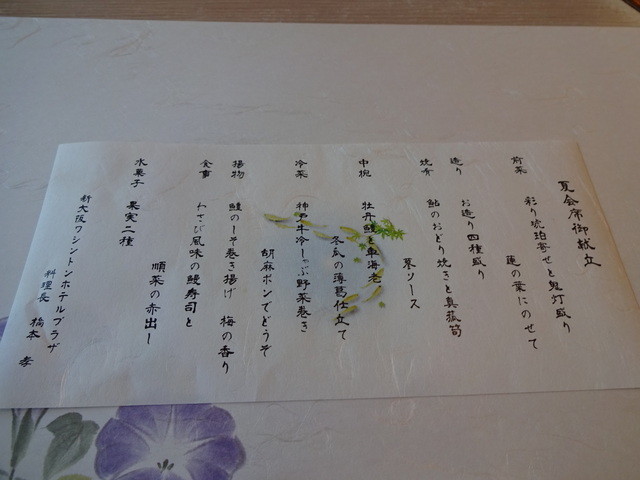 夏会席御献立
前菜 彩り琥珀寄せと鬼灯盛り
蓮の葉にのせて
造り お造り四種盛り
焼肴 鮎のおどり焼きと真菰筍
蓼ソース
中椀 牡丹鱧と車海老
冬瓜の薄葛仕立て
冷菜 神戸牛冷しゃぶ野菜巻き
胡麻ポンでどうぞ
揚物 鱧のしそ巻き揚げ 梅の香り
食事 わさび風味の鰻寿司と
順菜の赤出し
水菓子 果実二種
新大阪ワシントンホテルプラザ
料理長 橋本 孝